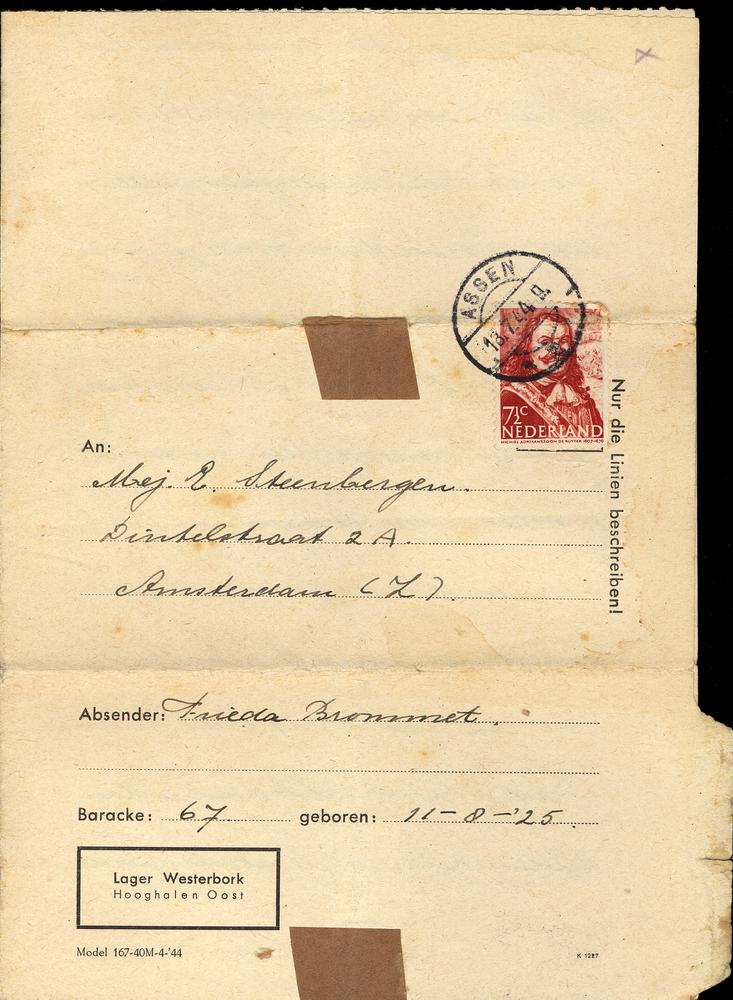 ASSEN
7½c
NEDERLAND
MICHIEL ADRIAANSZOON DE RUYTER 1607-1676
Nur die Linien beschreiben!
An:
Mej. E. Steenbergen.
Dintelstraat 2 A.
Amsterdam (Z).
Absender: Frieda Brommet.
Baracke: 67. geboren: 11-8-'25.
Lager Westerbork
Hooghalen Oost
Model 167-40M-4-'44
K 1287